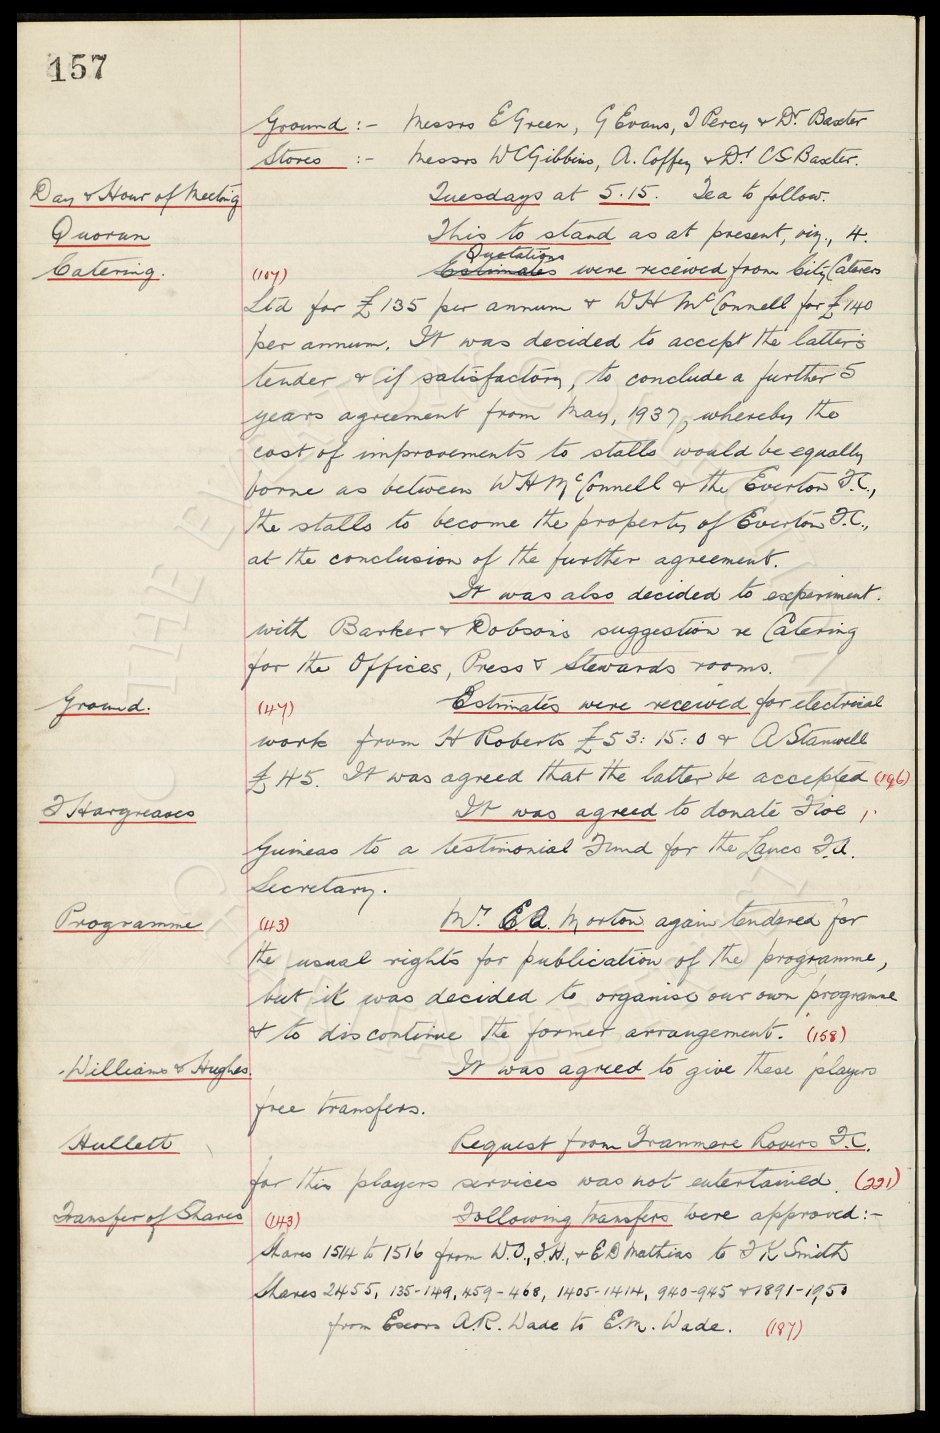 157
Ground :- Messrs E Green, G Evans, T Percy & Dr Baxter
Stores :- Messrs W C Gibbins, A. Coffey & Dr C S Baxter.
Day & Hour of Meeting Tuesdays at 5.15. Tea to follow.
Quorum This to stand as at present, viz., 4.
Quotations
Catering. (107) Estimates were received from City Caterers
Ltd for £135 per annum & W H McConnell for £140
per annum. It was decided to accept the latter's
tender & if satisfactory, to conclude a further 5
years agreement from May, 1937, whereby the
cost of improvements to stalls would be equally
borne as between W H McConnell & the Everton F.C.,
the stalls to become the property of Everton F.C.,
at the conclusion of the further agreement.
It was also decided to experiment.
with Barker & Dobson's suggestion re Catering
for the Offices, Press & Stewards rooms.
Ground. (47) Estimates were received for electrical
work from H Roberts £53:15:0 & A Stanwell
£45. It was agreed that the latter be accepted (196)
T Hargreaves It was agreed to donate Five
Guineas to a testimonial Fund for the Lancs F.A.
Secretary.
Programme (43) Mr. E A. Morton again tendered for
the usual rights for publication of the programme,
but it was decided to organise our own programme
& to discontinue the former arrangement. (158)
Williams & Hughes. It was agreed to give these players
free transfers.
Hullett Request from Tranmere Rovers F.C.
for this players services was not entertained. (221)
Transfer of Shares (143) Following transfers were approved:-
Shares 1514 to 1516 from W.O., F.H., & E D Mathias to F K Smith
Shares 2455, 135-149, 459-468, 1405-1414, 940-945 & 1891-1950
from Exors A.R. Wade to E.M. Wade. (187)